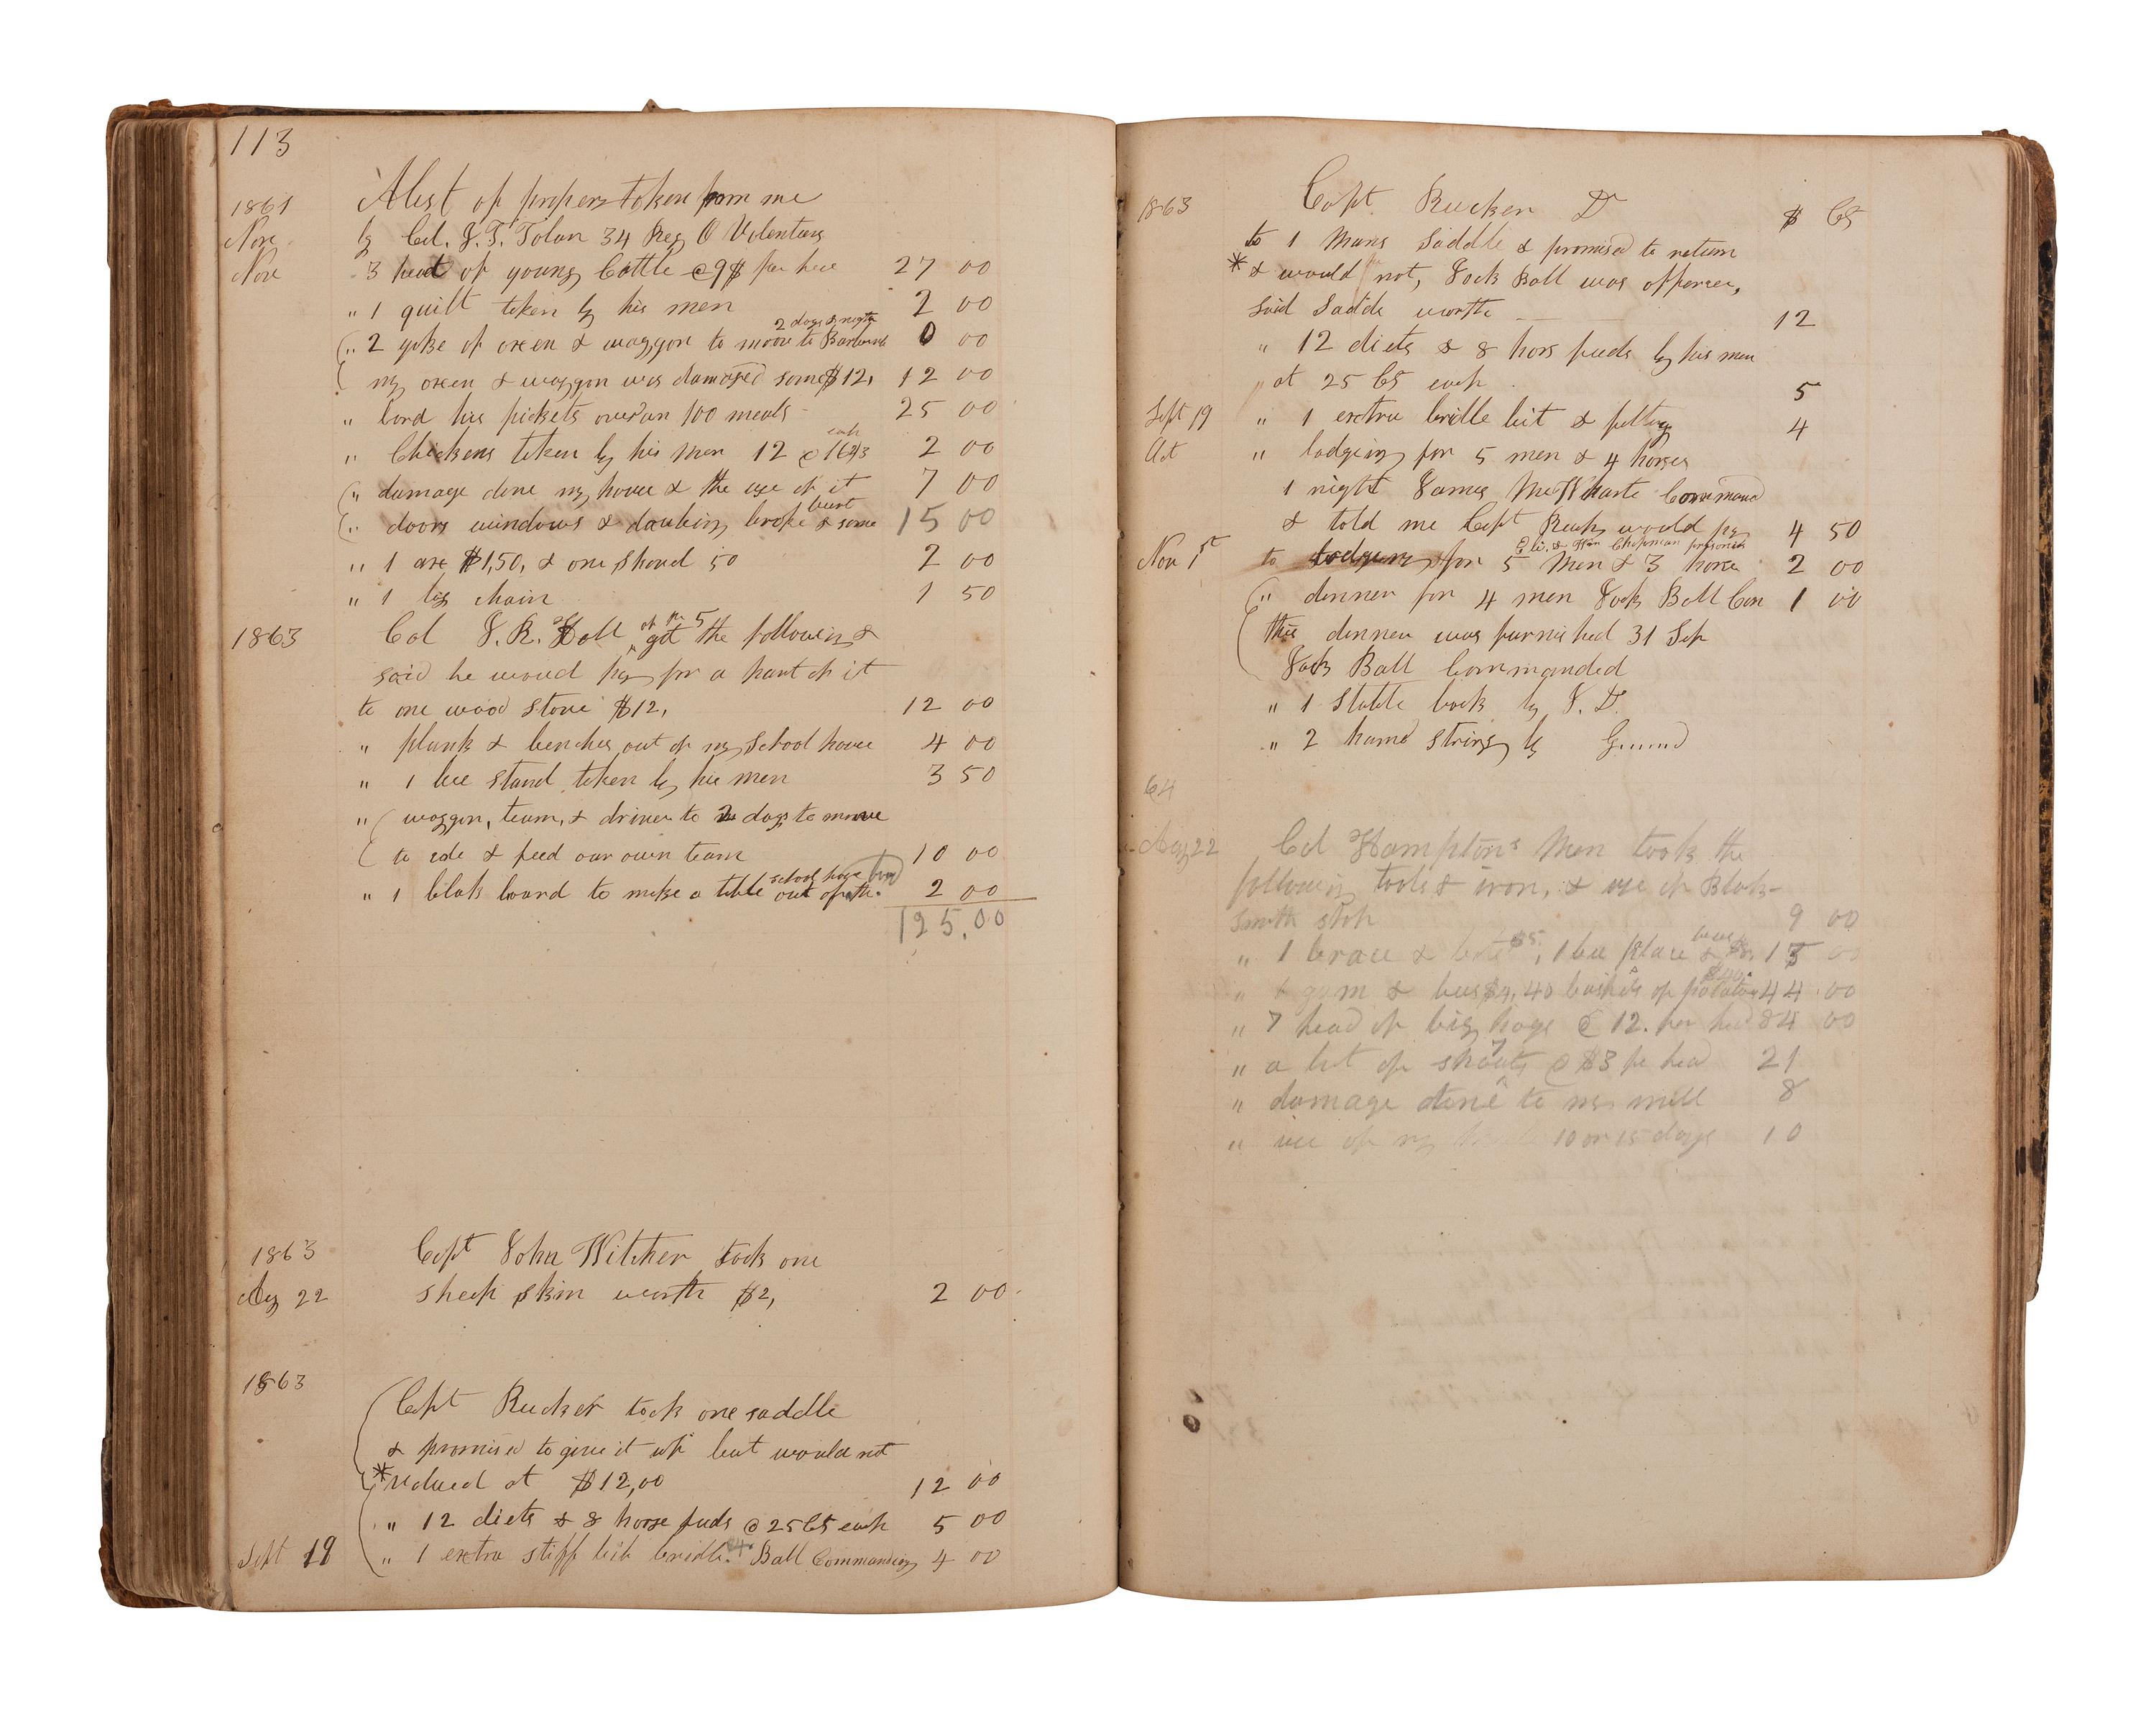 113
1861 A list of propers token from me
Nov by Col. J. T. Tolan 34 Reg O Volentars
Nov 3 head of young Cattle @ 9$ per head 27 00
" 1 quilt token by his men 2 00
2 days & nights
" 2 yoke of oxen & waggon to moove to 0 00
my oxen & waggon was damaged some $12, 12 00
" bord his pickets over an 100 meals 25 00
each
" Chickens token by his men 12 @ 16 2/3 2 00
" damage done my house & the use of it 7 00
burt
" doors windows & daubing broke & some 15 00
" 1 axe $1,50, & one shovel 50 2 00
" 1 log chain 1 50
of No 5
1863 Col J. R. Hall got the following &
said he woud pay for a part of it
to one wood stove $12, 12 00
" plank & benches out of my School house 4 00
" 1 bee stand token by his men 3 50
" waggon, team, & driver to 2 days to moove
to & feed our own team 10 00
school house
" 1 blak board to make a table out of the 2 00
125.00
1863 Capt John Witcher took one
Aug 22 sheep skin worth $2, 2 00
1863
Capt Rucker took one saddle
& promised to give it up but would not
* valued at $12,00 12 00
" 12 diets & 8 horse feeds @ 25 Cts each 5 00
Sept 19 " 1 extra stiff bit bridle. $4. Ball Commanding 4 00
1863 Capt. Rucker Dr $ Cts
to 1 Mans Saddle & promised to return
* & would not, Jock Ball was offercer,
said Saddle worth 12
" 12 diets & 8 hors feeds by his men
at 25 Cts each 5
Sept 19 " 1 extra bridle bit & 4
Oct " lodging for 5 men & 4 horses
1 night James McWharte Command
& told me Capt Ruck would pay 4 50
Eli. & Wm Chapman prisoners
Nov 1st to lodging for 5 Men & 3 horse 2 00
" dinner for 4 men Jock Ball Com 1 00
this dinner was furnished 31 Sep
Jock Ball Commanded
" 1 Statte book by J. D.
" 2 hame strings by
64
Aug 22 Col Hamptons Men took the
following tools & iron, & use of Blak-
Smith shop 9 00
" 1 brace & $5, 1 bee place & 13 00
$40.
" 1 gum & bees $4, 40 bushels of potatoes 44 00
" 7 head of big hogs @ 12. per head 84 00
7
" a lot of shoats @ $3 pe head 21
" damage done to my mill 8
" use of my 10 or 15 days 10